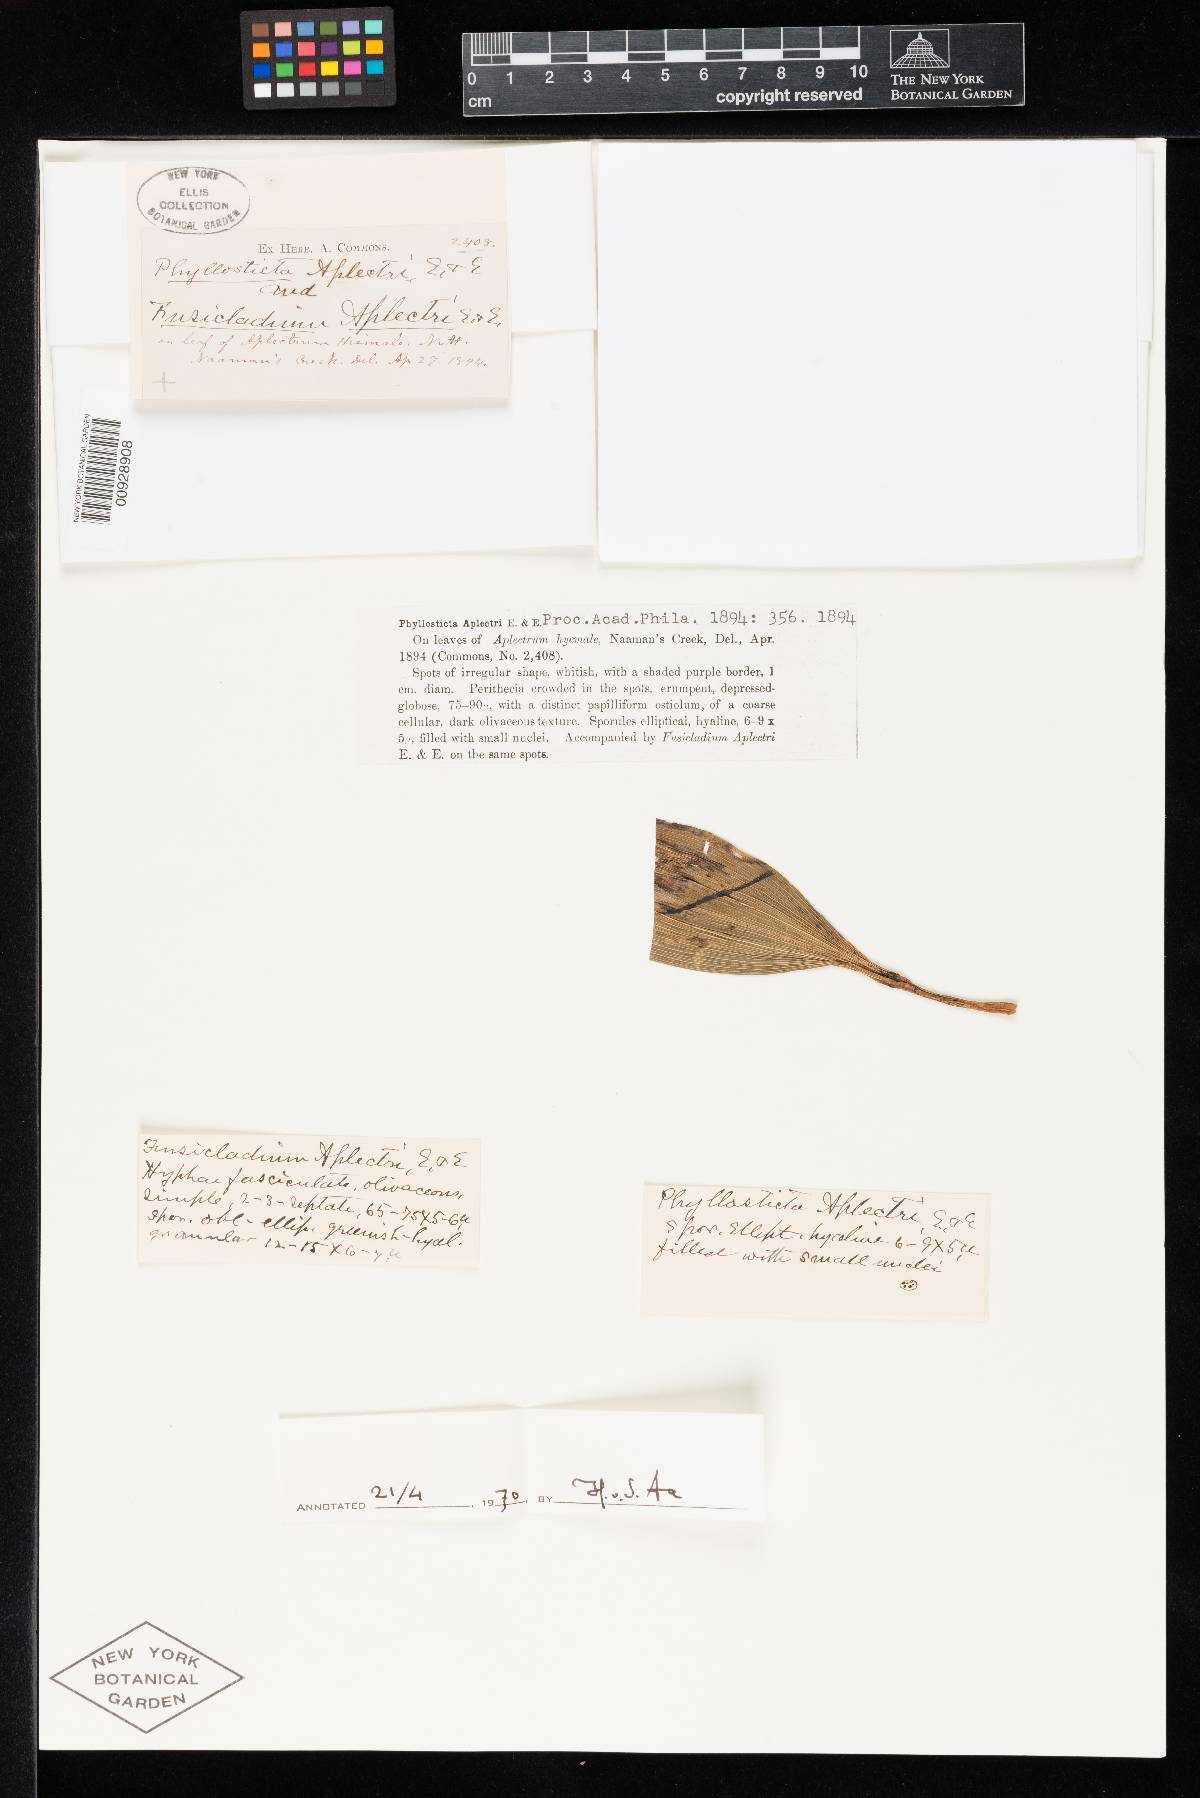 0 1 2 3 4 5 6 7 8 9 10
cm
copyright reserved
THE NEW YORK
BOTANICAL GARDEN
NEW YORK
ELLIS
COLLECTION
BOTANICAL GARDEN
EX HERB. A. COMMONS. 2408.
Phyllosticta Aplectri, E. & E
and
Fusicladium Aplectri E & E.
on leaf of Aplectrum Hiemale. Nutt.
Naaman's Creek. Del. Ap 27 1894.
NEW YORK BOTANICAL GARDEN
00928908
Phyllosticta Aplectri E. & E. Proc.Acad.Phila. 1894: 356. 1894
On leaves of Aplectrum hyemale, Naaman's Creek, Del., Apr.
1894 (Commons, No. 2,408).
Spots of irregular shape, whitish, with a shaded purple border, 1
cm. diam. Perithecia crowded in the spots, erumpent, depressed-
globose, 75–90µ, with a distinct papilliform ostiolum, of a coarse
cellular, dark olivaceous texture. Sporules elliptical, hyaline, 6–9 x
5µ, filled with small nuclei. Accompanied by Fusicladium Aplectri
E. & E. on the same spots.
Fusicladium Aplectri, E. & E.
Hyphae fasciculate, olivaceous,
simple, 2-3-septate, 65-75X5-6µ
spor. obl-ellip. greenish-hyal.
granular 12-15 X 6-7µ
Phyllosticta Aplectri, E. & E
Spor. Ellipt. hyaline 6-9X5µ.
filled with small nuclei
ANNOTATED 21/4, 1970, BY H.v.d. Aa
NEW YORK
BOTANICAL
GARDEN